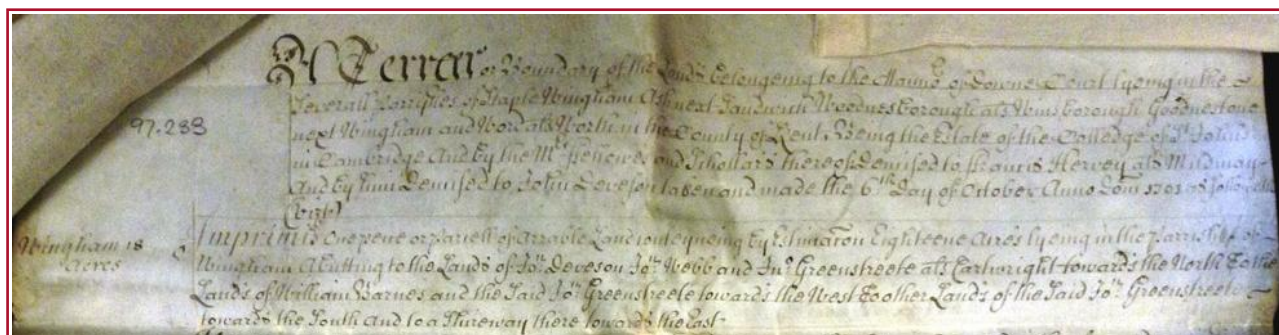 A Terrar or Boundary of the Lands belongeing to the Mannor of Downe Court lyeing in the
severall Parrishes of Staple Wingham Ash next Sandwich Woodnesborough als Winsborough Goodnestone
97.283
next Wingham and Word als Worth in the County of Kent, Being the Estate of the Colledge of St. Johns
in Cambridge And by the Mr. fellowes and Schollars thereof Demised to francis Hervey als Mildmay
And by him Demised to John Deveson taken and made the 6th Day of October Anno Dom 1701 as followeth
(vizt)
Wingham 18 Acres
Imprimis One peice or Parcell of Arrable Land conteyneing by Estimacon Eighteene Acres lyeing in the Parrish of
Wingham Abutting to the Lands of Jon. Deveson Jon. Webb and Jno. Greenstreete als Cartwright towards the North To the
Lands of William Barnes and the said Jon. Greenstreete towards the West To other Lands of the said Jon. Greenstreete
towards the South And to a Shireway there towards the East